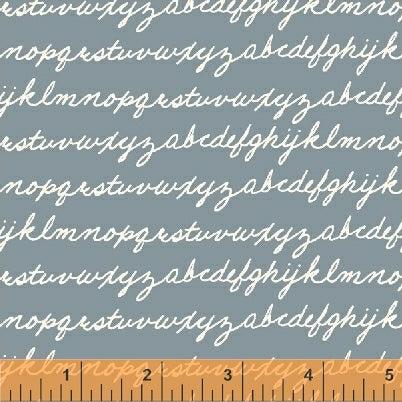 rstuvwxyzabcdefghijklmno
nopqrstuvwxyzabcdefghijk
ijklmnopqrstuvwxyzabcdef
rstuvwxyzabcdefghijklmno
nopqrstuvwxyzabcdefghijk
ijklmnopqrstuvwxyzabcdef
rstuvwxyzabcdefghijklmno
nopqrstuvwxyzabcdefghijk
ijklmnopqrstuvwxyzabcdef
1 2 3 4 5